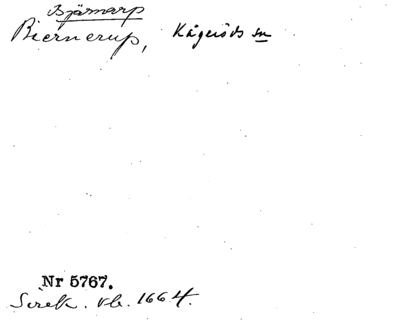 Bjärnarp
Biernerup, Kågeröds sn
Nr 5767.
Svrek. vb. 1664.